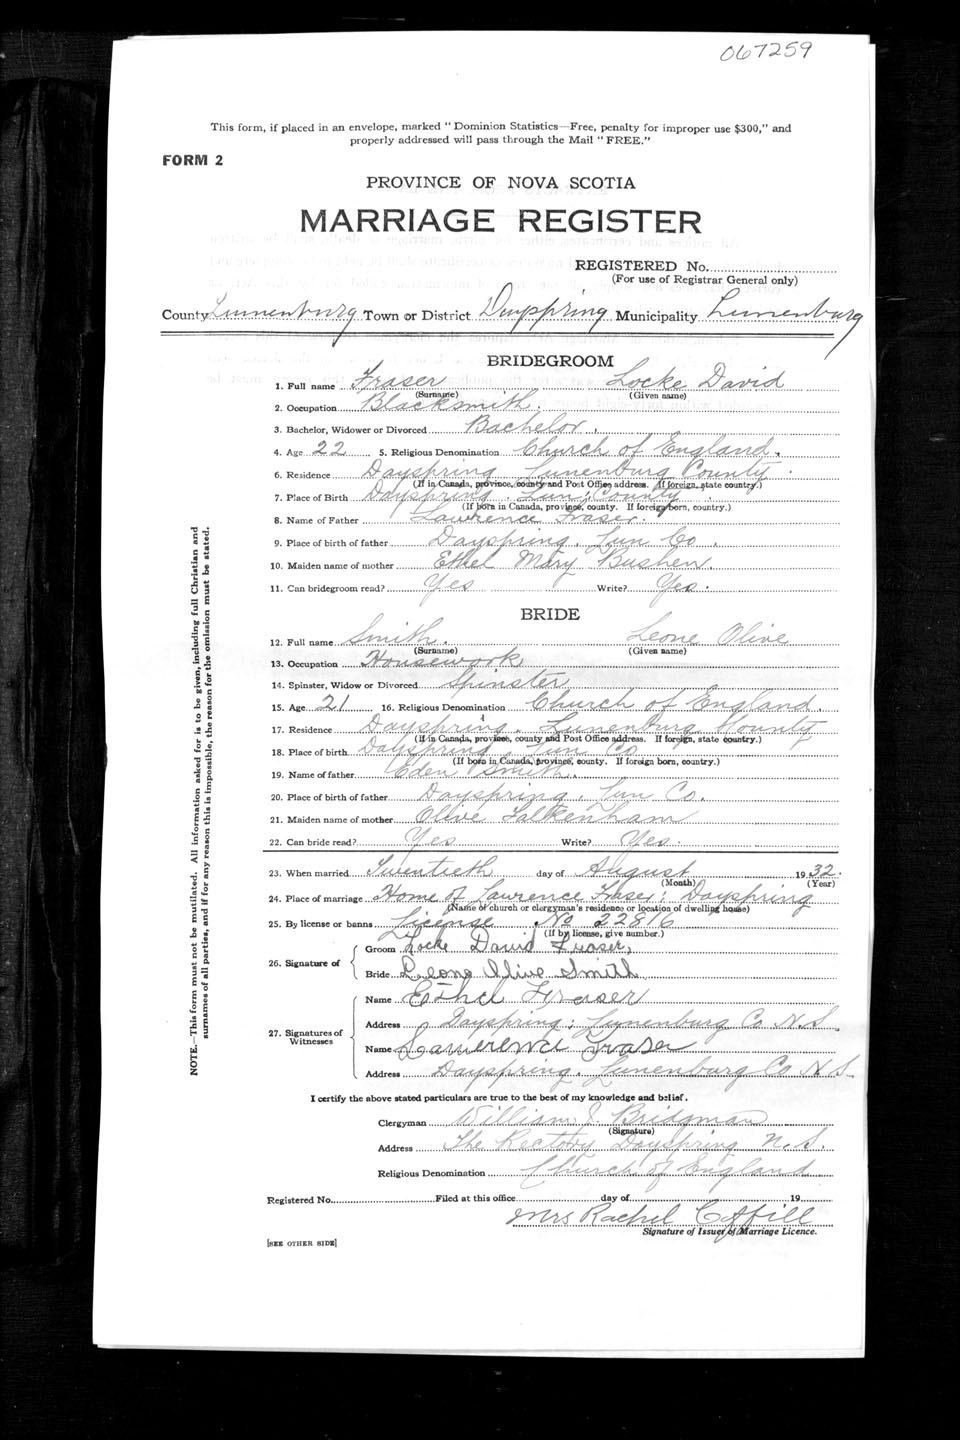 067259
This form, if placed in an envelope, marked "Dominion Statistics—Free, penalty for improper use $300," and
properly addressed will pass through the Mail "FREE."
FORM 2
PROVINCE OF NOVA SCOTIA
MARRIAGE REGISTER
REGISTERED No.
(For use of Registrar General only)
County Lunenburg Town or District Dayspring Municipality Lunenburg
BRIDEGROOM
1. Full name Fraser Locke David
(Surname) (Given name)
2. Occupation Blacksmith.
3. Bachelor, Widower or Divorced Bachelor.
4. Age 22 5. Religious Denomination Church of England.
6. Residence Dayspring Lunenburg County.
(If in Canada, province, county and Post Office address. If foreign, state country.)
7. Place of Birth Dayspring. Lun. County.
(If born in Canada, province, county. If foreign born, country.)
8. Name of Father Lawrence Fraser.
9. Place of birth of father Dayspring. Lun Co.
10. Maiden name of mother Ethel Mary Bushen.
11. Can bridegroom read? Yes Write? Yes.
BRIDE
12. Full name Smith. Leone Olive
(Surname) (Given name)
13. Occupation Housework
14. Spinster, Widow or Divorced Spinster
15. Age 21 16. Religious Denomination Church of England.
17. Residence Dayspring, Lunenburg County
(If in Canada, province, county and Post Office address. If foreign, state country.)
18. Place of birth Dayspring. Lun Co
(If born in Canada, province, county. If foreign born, country.)
19. Name of father Eden Smith.
20. Place of birth of father Dayspring. Lun Co.
21. Maiden name of mother Olive Falkenham
22. Can bride read? Yes Write? Yes.
23. When married Twentieth day of August 1932.
(Month) (Year)
24. Place of marriage Home of Lawrence Fraser, Dayspring
(Name of church or clergyman's residence or location of dwelling house)
25. By license or banns License. No 22876
(If by license, give number.)
26. Signature of
Groom Locke David Fraser,
Bride Leone Olive Smith
27. Signatures of Witnesses
Name Ethel Fraser
Address Dayspring, Lunenburg Co N.S.
Name Lawrence Fraser
Address Dayspring. Lunenburg Co N.S.
I certify the above stated particulars are true to the best of my knowledge and belief.
Clergyman William J. Bridgman
(Signature)
Address The Rectory Dayspring N.S.
Religious Denomination Church of England
Registered No. Filed at this office day of 19
Mrs Rachel
Signature of Issuer of Marriage Licence.
[SEE OTHER SIDE]
NOTE.—This form must not be mutilated. All information asked for is to be given, including full Christian and
surnames of all parties, and if for any reason this is impossible, the reason for the omission must be stated.